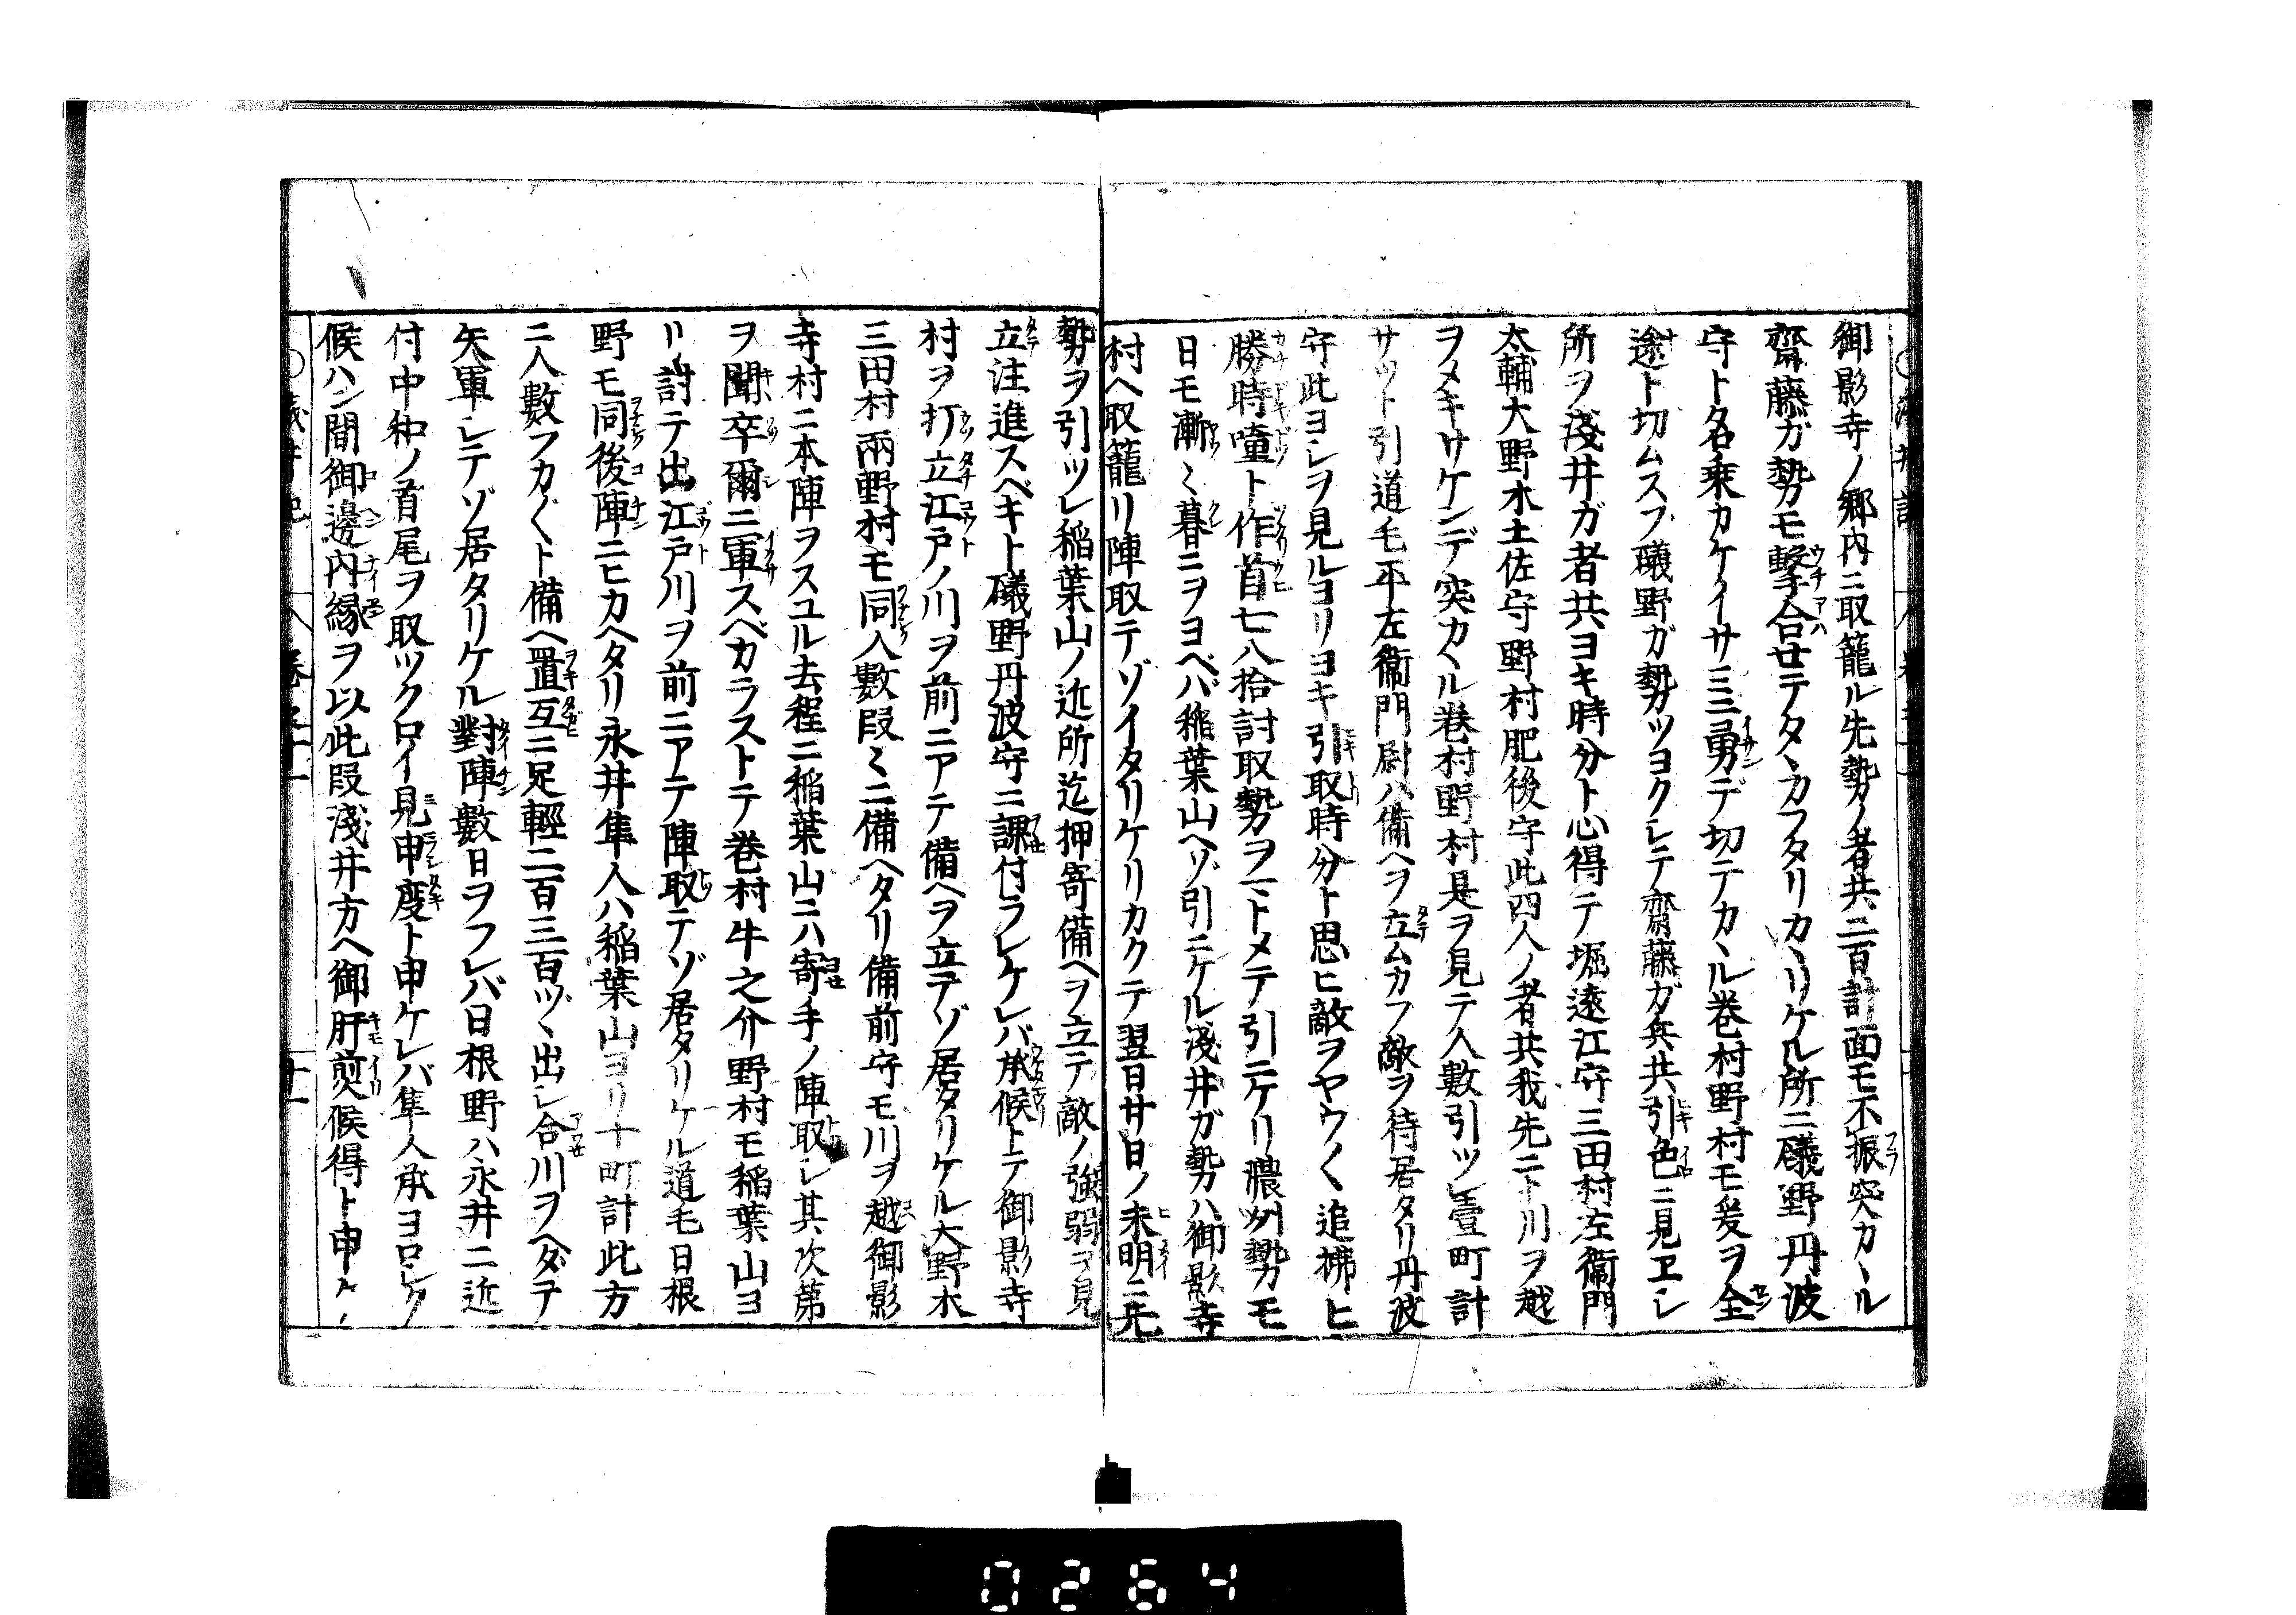 御影寺ノ郷内ニ取籠ル先勢ノ者共二百計面モ不振突カヽル
齋藤ガ勢モ擊合せテタヽカフタリカヽリケル所ニ礒野丹波
守ト名乗カケイサミ勇デ切テカヽル巻村野村モ爰ヲ全
途ト切ムスブ礒野ガ勢カツヨクシテ齋藤ガ兵共引色ニ見エシ
所ヲ淺井ガ者共ヨキ時分ト心得テ堀遠江守三田村左衞門
太輔大野木土佐守野村肥後守此四人ノ者共我先ニト川ヲ越
ヲメキサケンデ突カヽル巻村野村是ヲ見テ人數引ツレ壹町計
サツト引道毛平左衞門尉ハ備ヘヲ立ムカフ敵ヲ待居タリ丹波
守此ヨシヲ見ルヨリヨキ引取時分ト思ヒ敵ヲヤウ〱追拂ヒ
勝時噇ト作首七八拾討取勢ヲ一トメテ引ニケリ濃州勢モ
日モ漸〻暮ニヲヨベバ稲葉山ヘゾ引ニケル淺井ガ勢ハ御影寺
村ヘ取籠リ陣取テゾイタリケリカクテ翌日廿日ノ未明ニ先
勢ヲ引ツレ稲葉山ノ近所迄押寄備ヘヲ立テ敵ノ強弱ヲ見
立注進スベキト礒野丹波守ニ課付ラレケレバ承候トテ御影寺
村ヲ打立江戸ノ川ヲ前ニアテ備ヘヲ立テゾ居タリケル大野木
三田村兩野村モ同人數段〻ニ備ヘタリ備前守モ川ヲ越御影
寺村ニ本陣ヲスユル去程ニ稲葉山ニハ寄手ノ陣取シ其次第
ヲ聞卒爾ニ軍スベカラストテ巻村牛之介野村モ稲葉山ヨ
リ討テ出江戸川ヲ前ニアテ陣取テゾ居タリケル道毛日根
野モ同後陣ニヒカヘタリ永井隼人ハ稲葉山ヨリ十町計此方
ニ人數フカ〱ト備ヘ置互ニ足輕二百三百ヅヽ出シ合川ヲヘダテ
矢軍シテゾ居タリケル對陣數日ヲフレバ日根野ハ永井ニ近
付中和ノ首尾ヲ取ツクロイ見申度ト申ケレバ隼人承ヨロシク
候ハン間御邊内縁ヲ以此段淺井方ヘ御肝煎候得ト申ケ